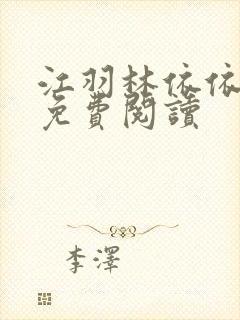 江羽林依依
免費閱讀
李澤